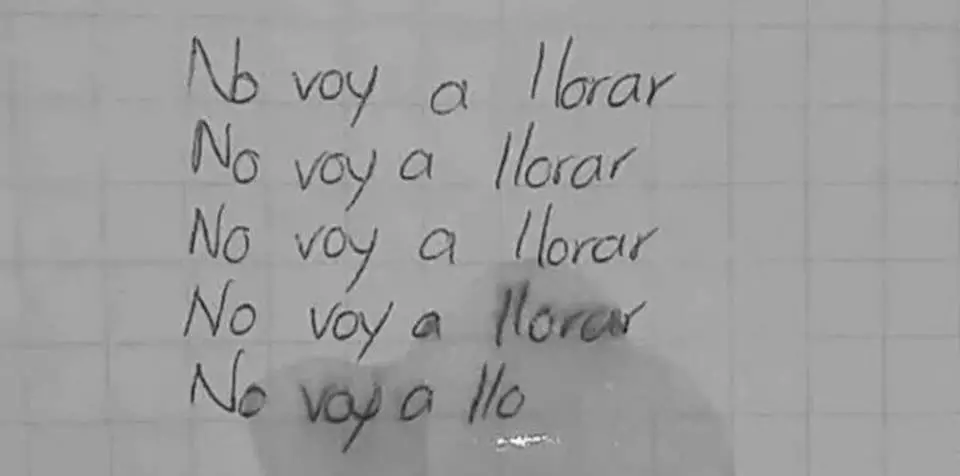 No voy a llorar
No voy a llorar
No voy a llorar
No voy a llorar
No voy a llo